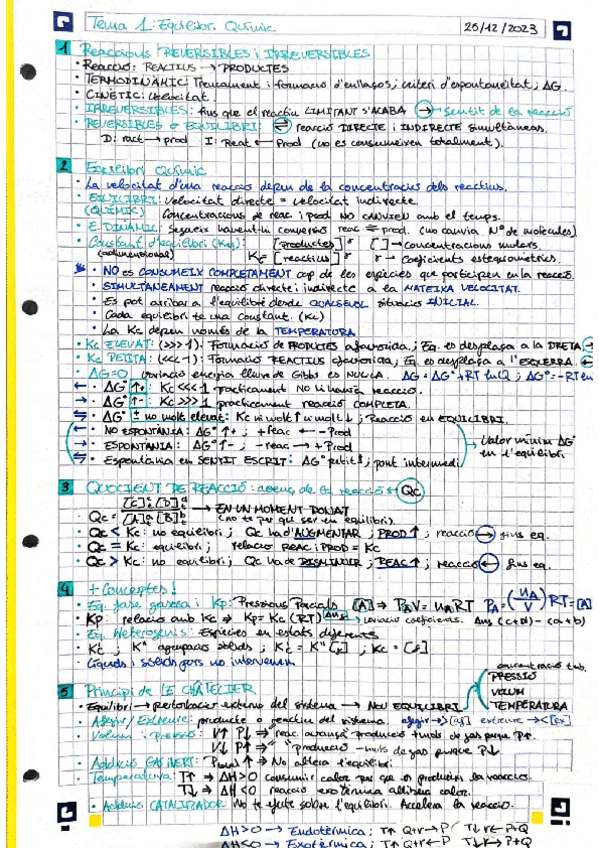 Tema 1: Equilibri Químic 25/12/2023
1 Reaccions REVERSIBLES i IRREVERSIBLES
• Reacció: REACTIUS → PRODUCTES
• TERMODINÀMIC: Trencament i formació d'enllaços; criteri d'espontaneïtat; ΔG.
• CINÈTIC: Velocitat.
• IRREVERSIBLES: fins que el reactiu LIMITANT S'ACABA → Sentit de la reacció
• REVERSIBLES o EQUILIBRI: ⇌ reacció DIRECTE i INDIRECTE simultànies.
D: react → prod I: React ← Prod (no es consumeixen totalment).
2 Equilibri Químic
• La velocitat d'una reacció depen de la concentració dels reactius.
• EQUILIBRI: Velocitat directe = velocitat indirecte
(QUÍMIC) Concentracions de reac i prod NO CANVIEN amb el temps.
• E. DINÀMIC: Segueix havent-hi conversió reac ⇌ prod. (no canvia Nº de molècules)
• Constant d'equilibri (Keq): [productes]ʳ [ ] → concentracions molars.
(adimensional) Kc = [reactius]ʳ r → coeficients estequiomètrics.
• NO es CONSUMEIX COMPLETAMENT cap de les espècies que participen en la reacció
• SIMULTANEAMENT reacció directe i indirecte a la MATEIXA VELOCITAT.
• Es pot arribar a l'equilibri desde QUALSEVOL situació INICIAL.
• Cada equilibri té una constant. (Kc)
• La Kc depen només de la TEMPERATURA
• Kc ELEVAT: (>>>1). Formació de PRODUCTES afavorida; Eq. es desplaça a la DRETA →
• Kc PETITA: (<<<1): Formació REACTIUS afavorida; Eq. es desplaça a l'ESQUERRA ←
• ΔG=0 (variació energia lliure de Gibbs es NUL·LA. ΔG = ΔG° + RT lnQ; ΔG° = -RT ln
← • ΔG° ↑+: Kc <<< 1 practicament NO hi hauria reacció.
→ • ΔG° ↑-: Kc >>> 1 practicament reacció COMPLETA.
⇌ • ΔG° ± no molt elevat: Kc ni molt ↑ ni molt ↓; Reacció en EQUILIBRI.
← • NO ESPONTÀNIA: ΔG° ↑+; +reac ← -Prod
→ • ESPONTÀNIA: ΔG° ↑-; -reac → +Prod Valor mínim ΔG°
⇌ • Espontània en SENTIT ESCRIT: ΔG° petit!; punt intermedi en l'equilibri
3 QUOCIENT DE REACCIÓ: avenç de la reacció Qc
• Qc = [C]ᶜ[D]ᵈ / [A]ᵃ[B]ᵇ → EN UN MOMENT DONAT
(no te per que ser en equilibri).
• Qc < Kc: no equilibri; Qc ha d'AUGMENTAR; PROD↑; reacció → fins eq.
• Qc = Kc: equilibri; relació REAC i PROD = Kc
• Qc > Kc: no equilibri; Qc ha de DISMINUIR; REAC↑; reacció ← fins eq.
4 + Conceptes!
• Eq. fase gasosa i Kp: Pressions Parcials [A] ⇒ PₐV = nₐRT Pₐ = (nₐ/V) RT = [A]
• Kp: relació amb Kc ⇒ Kp = Kc (RT)^Δn → variació coeficients. Δn = (c+d) - (a+b)
• Eq. Heterogenis: Espècies en estats diferents
• Líquids i sòlids purs no intervenen
5 Principi de LE CHÂTELIER
concentració
PRESSIÓ
VOLUM
TEMPERATURA
• Equilibri → pertorbació externa del sistema → NOU EQUILIBRI
• Afegir/Extreure: producte o reactiu del sistema. afegir → extreure → ←
• Volum i pressió: V↑ P↓ ⇒ reac. avança producció + mols de gas perque P↑.
V↓ P↑ ⇒ " producció - mols de gas perque P↓
• Addició GAS INERT: ↑ → No altera l'equilibri.
• Temperatura: T↑ → ΔH>0 consumir calor per que es produeixi la reacció.
T↓ → ΔH<0 reacció exotèrmica allibera calor.
• Addició CATALITZADOR: No te efecte sobre l'equilibri. Accelera la reacció.
ΔH>0 → Endotèrmica; T↑ Q+r→P / T↓ r←P+Q
ΔH<0 → Exotèrmica; T↑ Q+r←P T↓ r→P+Q